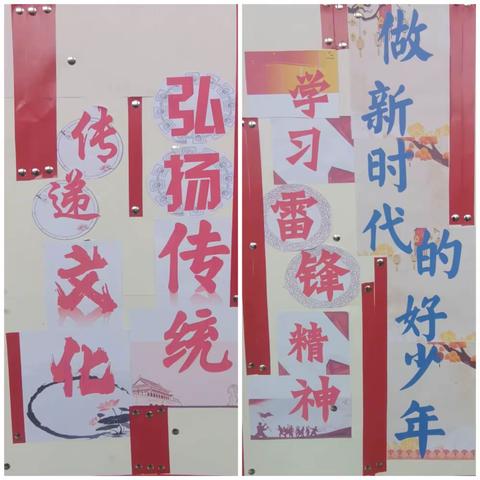 弘扬传统
传递文化
学习雷锋精神
做新时代的好少年